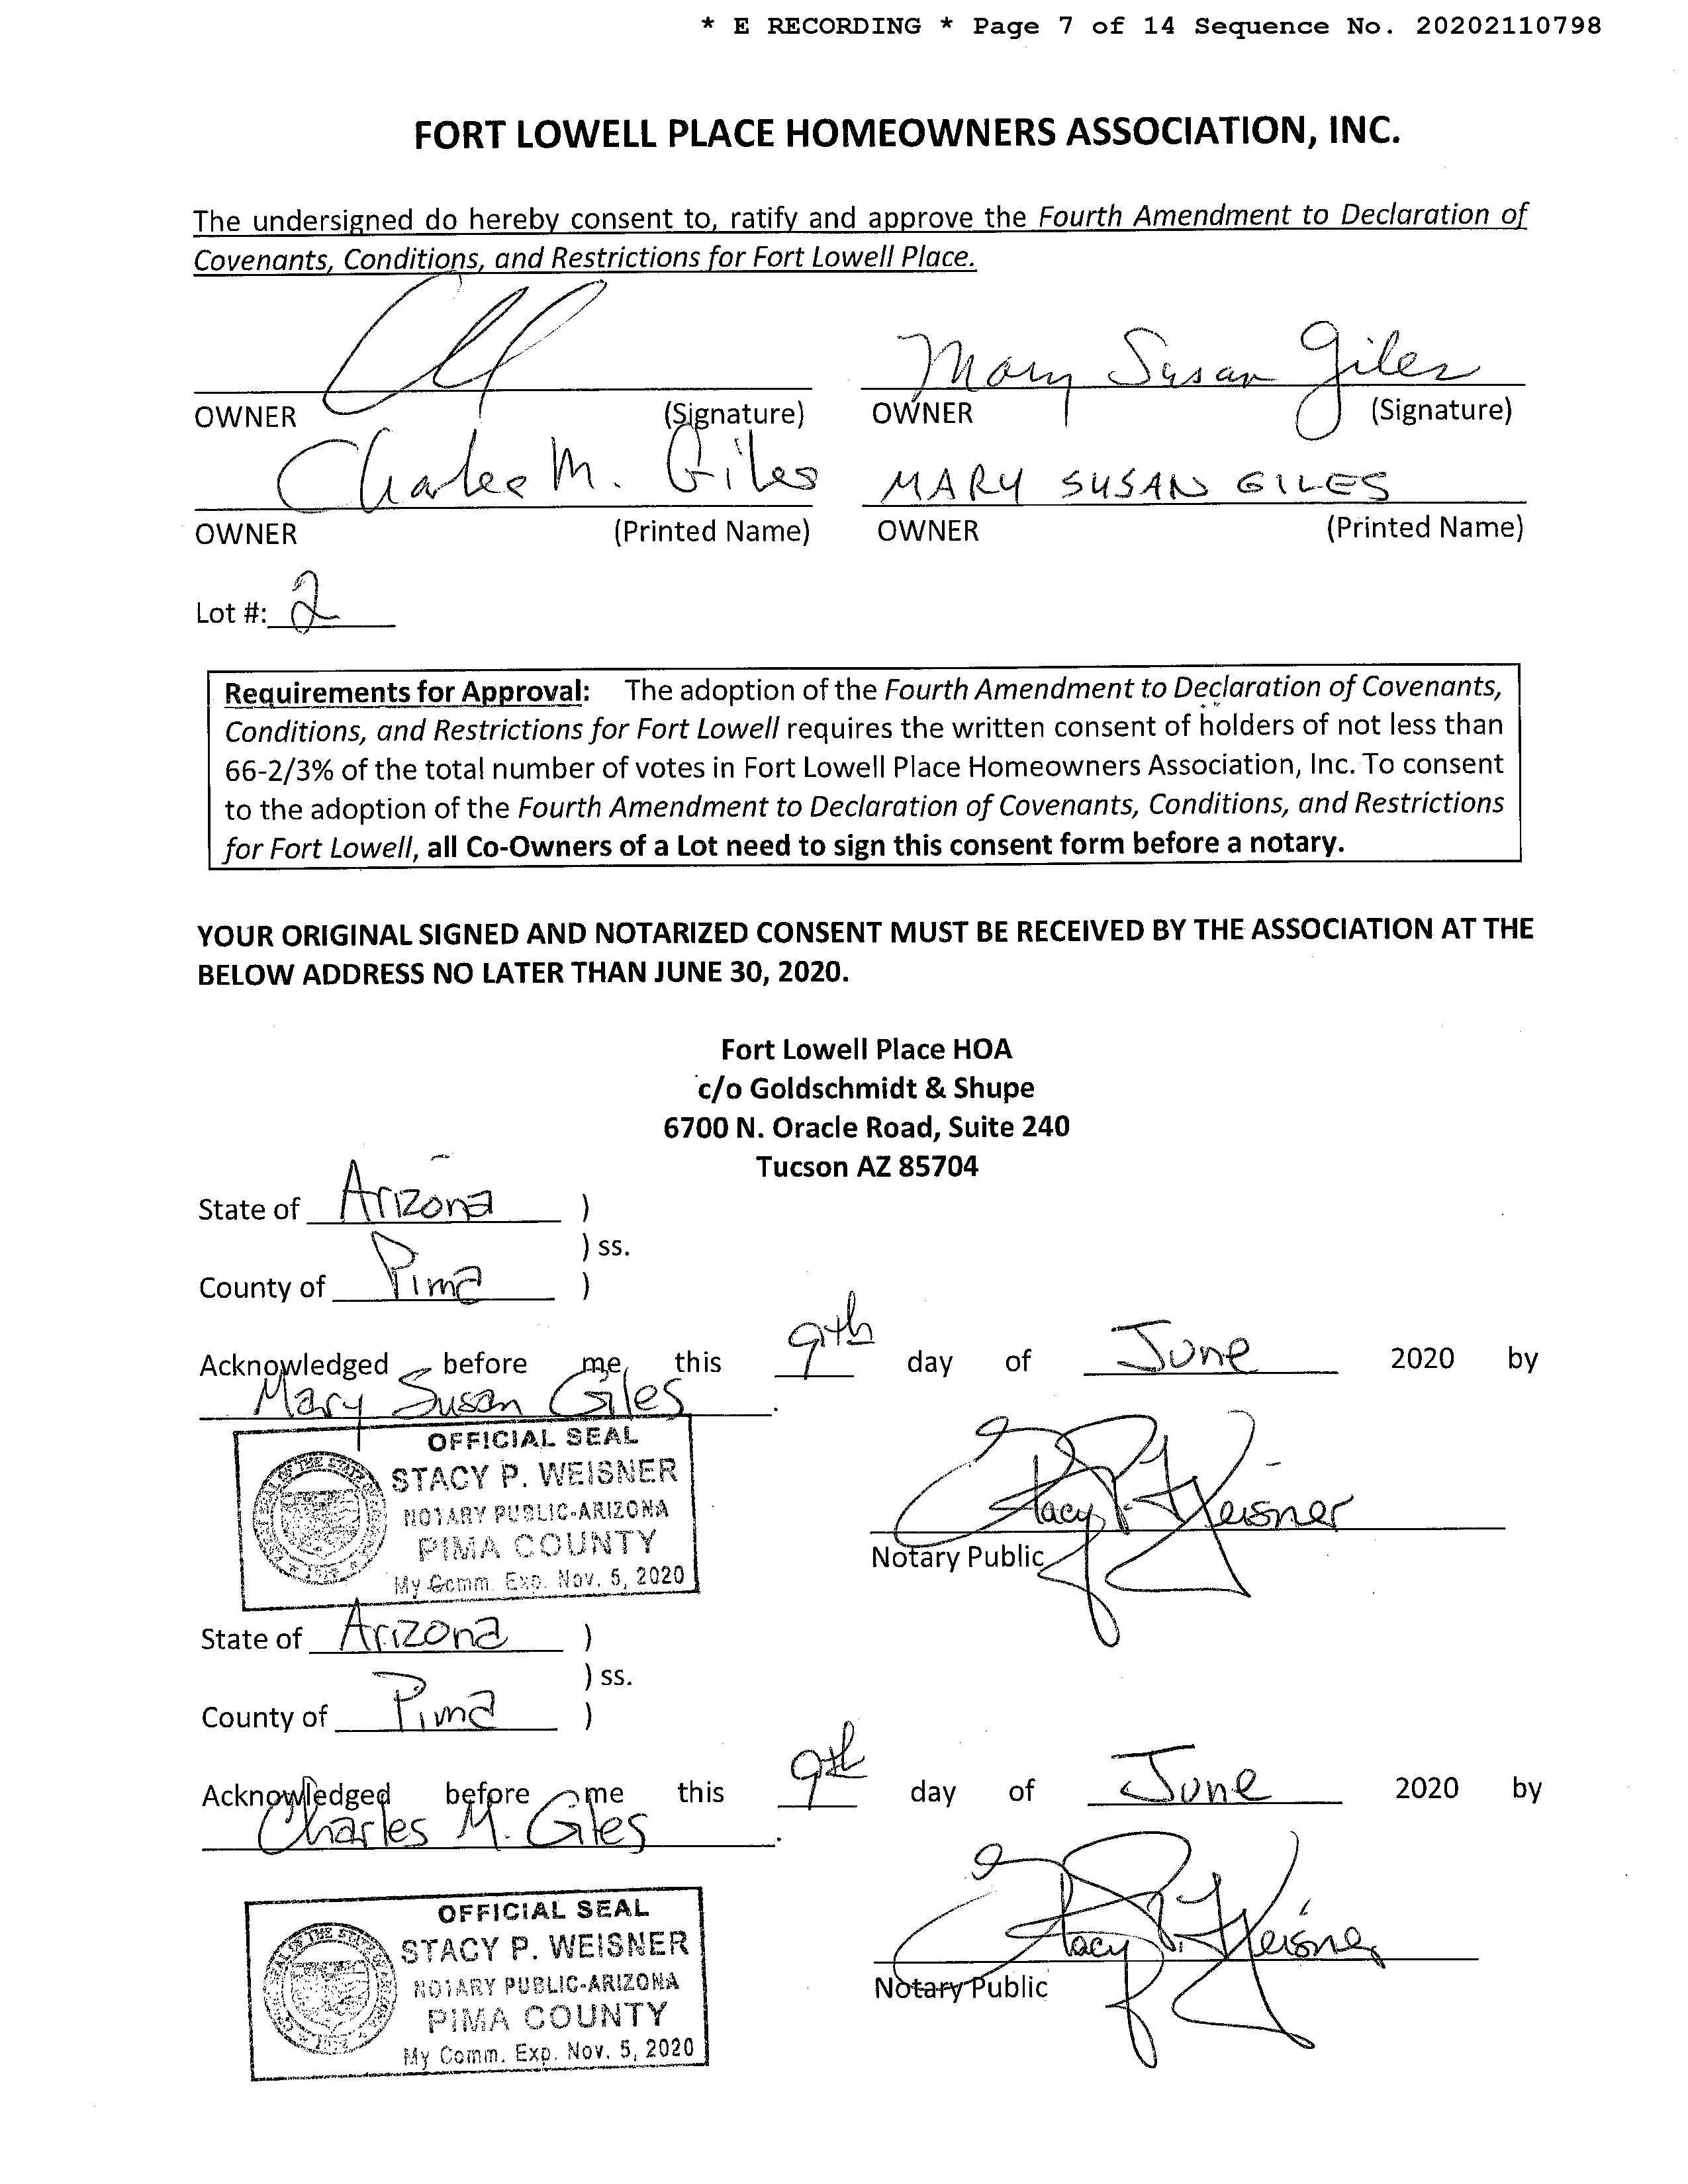 * E RECORDING * Page 7 of 14 Sequence No. 20202110798
FORT LOWELL PLACE HOMEOWNERS ASSOCIATION, INC.
The undersigned do hereby consent to, ratify and approve the Fourth Amendment to Declaration of
Covenants, Conditions, and Restrictions for Fort Lowell Place.
Mary Susan Giles
OWNER (Signature) OWNER (Signature)
Charles M. Giles MARY SUSAN GILES
OWNER (Printed Name) OWNER (Printed Name)
Lot #: 2
Requirements for Approval: The adoption of the Fourth Amendment to Declaration of Covenants,
Conditions, and Restrictions for Fort Lowell requires the written consent of holders of not less than
66-2/3% of the total number of votes in Fort Lowell Place Homeowners Association, Inc. To consent
to the adoption of the Fourth Amendment to Declaration of Covenants, Conditions, and Restrictions
for Fort Lowell, all Co-Owners of a Lot need to sign this consent form before a notary.
YOUR ORIGINAL SIGNED AND NOTARIZED CONSENT MUST BE RECEIVED BY THE ASSOCIATION AT THE
BELOW ADDRESS NO LATER THAN JUNE 30, 2020.
Fort Lowell Place HOA
c/o Goldschmidt & Shupe
6700 N. Oracle Road, Suite 240
Tucson AZ 85704
State of Arizona )
) ss.
County of Pima )
Acknowledged before me, this 9th day of June 2020 by
Mary Susan Giles.
OFFICIAL SEAL
STACY P. WEISNER
NOTARY PUBLIC-ARIZONA
PIMA COUNTY
My Comm. Exp. Nov. 5, 2020
Stacy P. Weisner
Notary Public
State of Arizona )
) ss.
County of Pima )
Acknowledged before me this 9th day of June 2020 by
Charles M. Giles.
OFFICIAL SEAL
STACY P. WEISNER
NOTARY PUBLIC-ARIZONA
PIMA COUNTY
My Comm. Exp. Nov. 5, 2020
Stacy P. Weisner
Notary Public